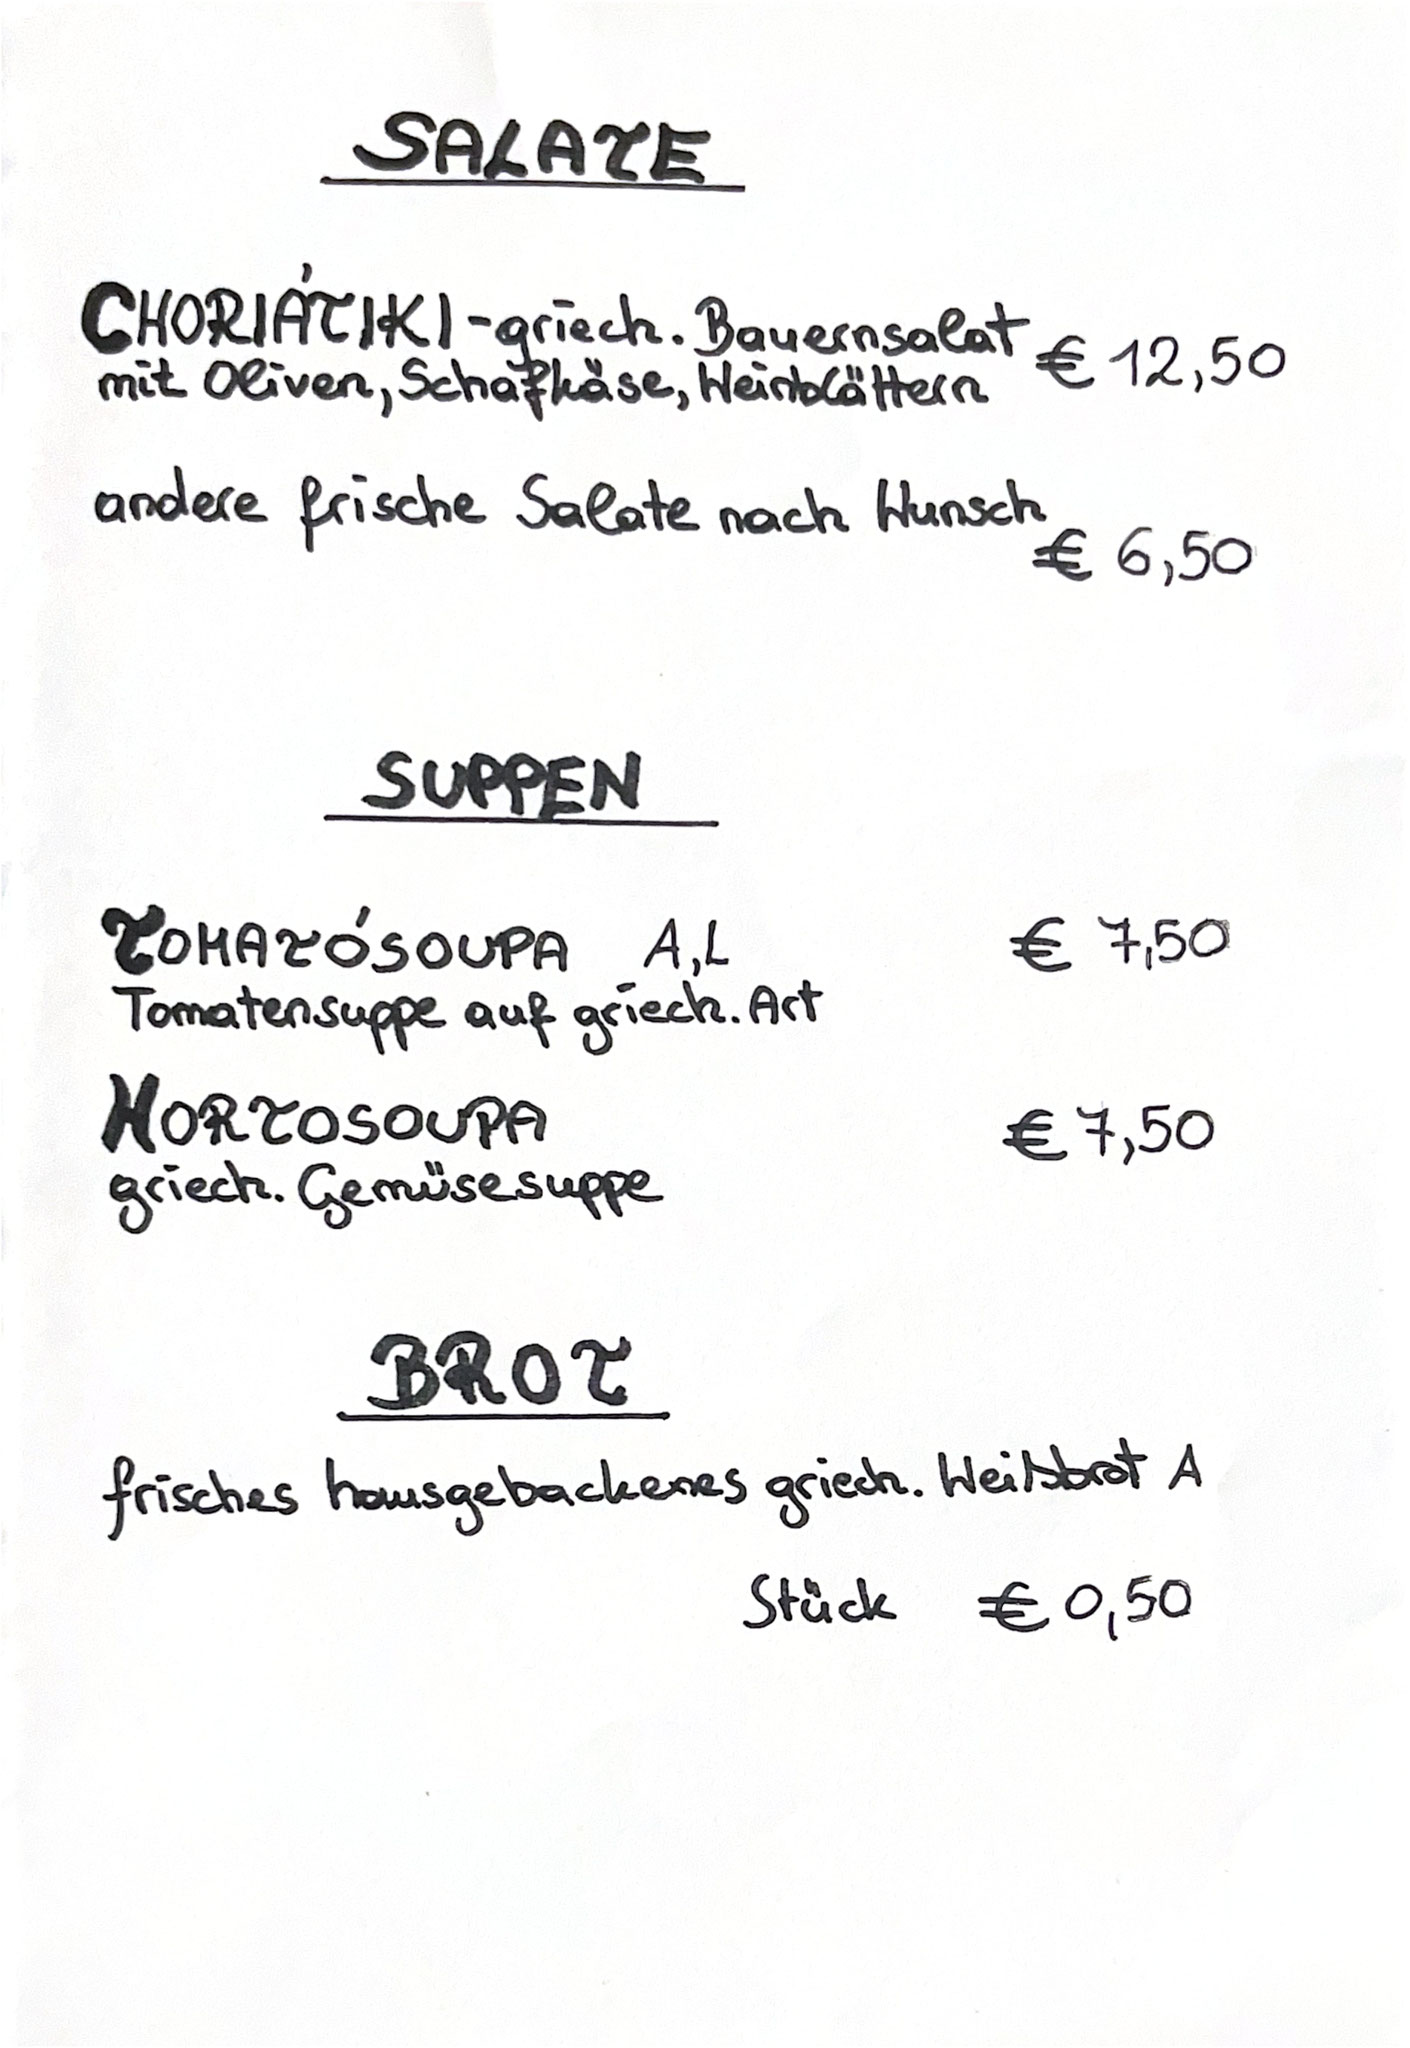 SALATE
CHORIÁTIKI - griech. Bauernsalat
mit Oliven, Schafkäse, Weinblättern € 12,50
andere frische Salate nach Wunsch
€ 6,50
SUPPEN
TOMATÓSOUPA A,L € 7,50
Tomatensuppe auf griech. Art
HORTOSOUPA € 7,50
griech. Gemüsesuppe
BROT
frisches hausgebackenes griech. Weißbrot A
Stück € 0,50